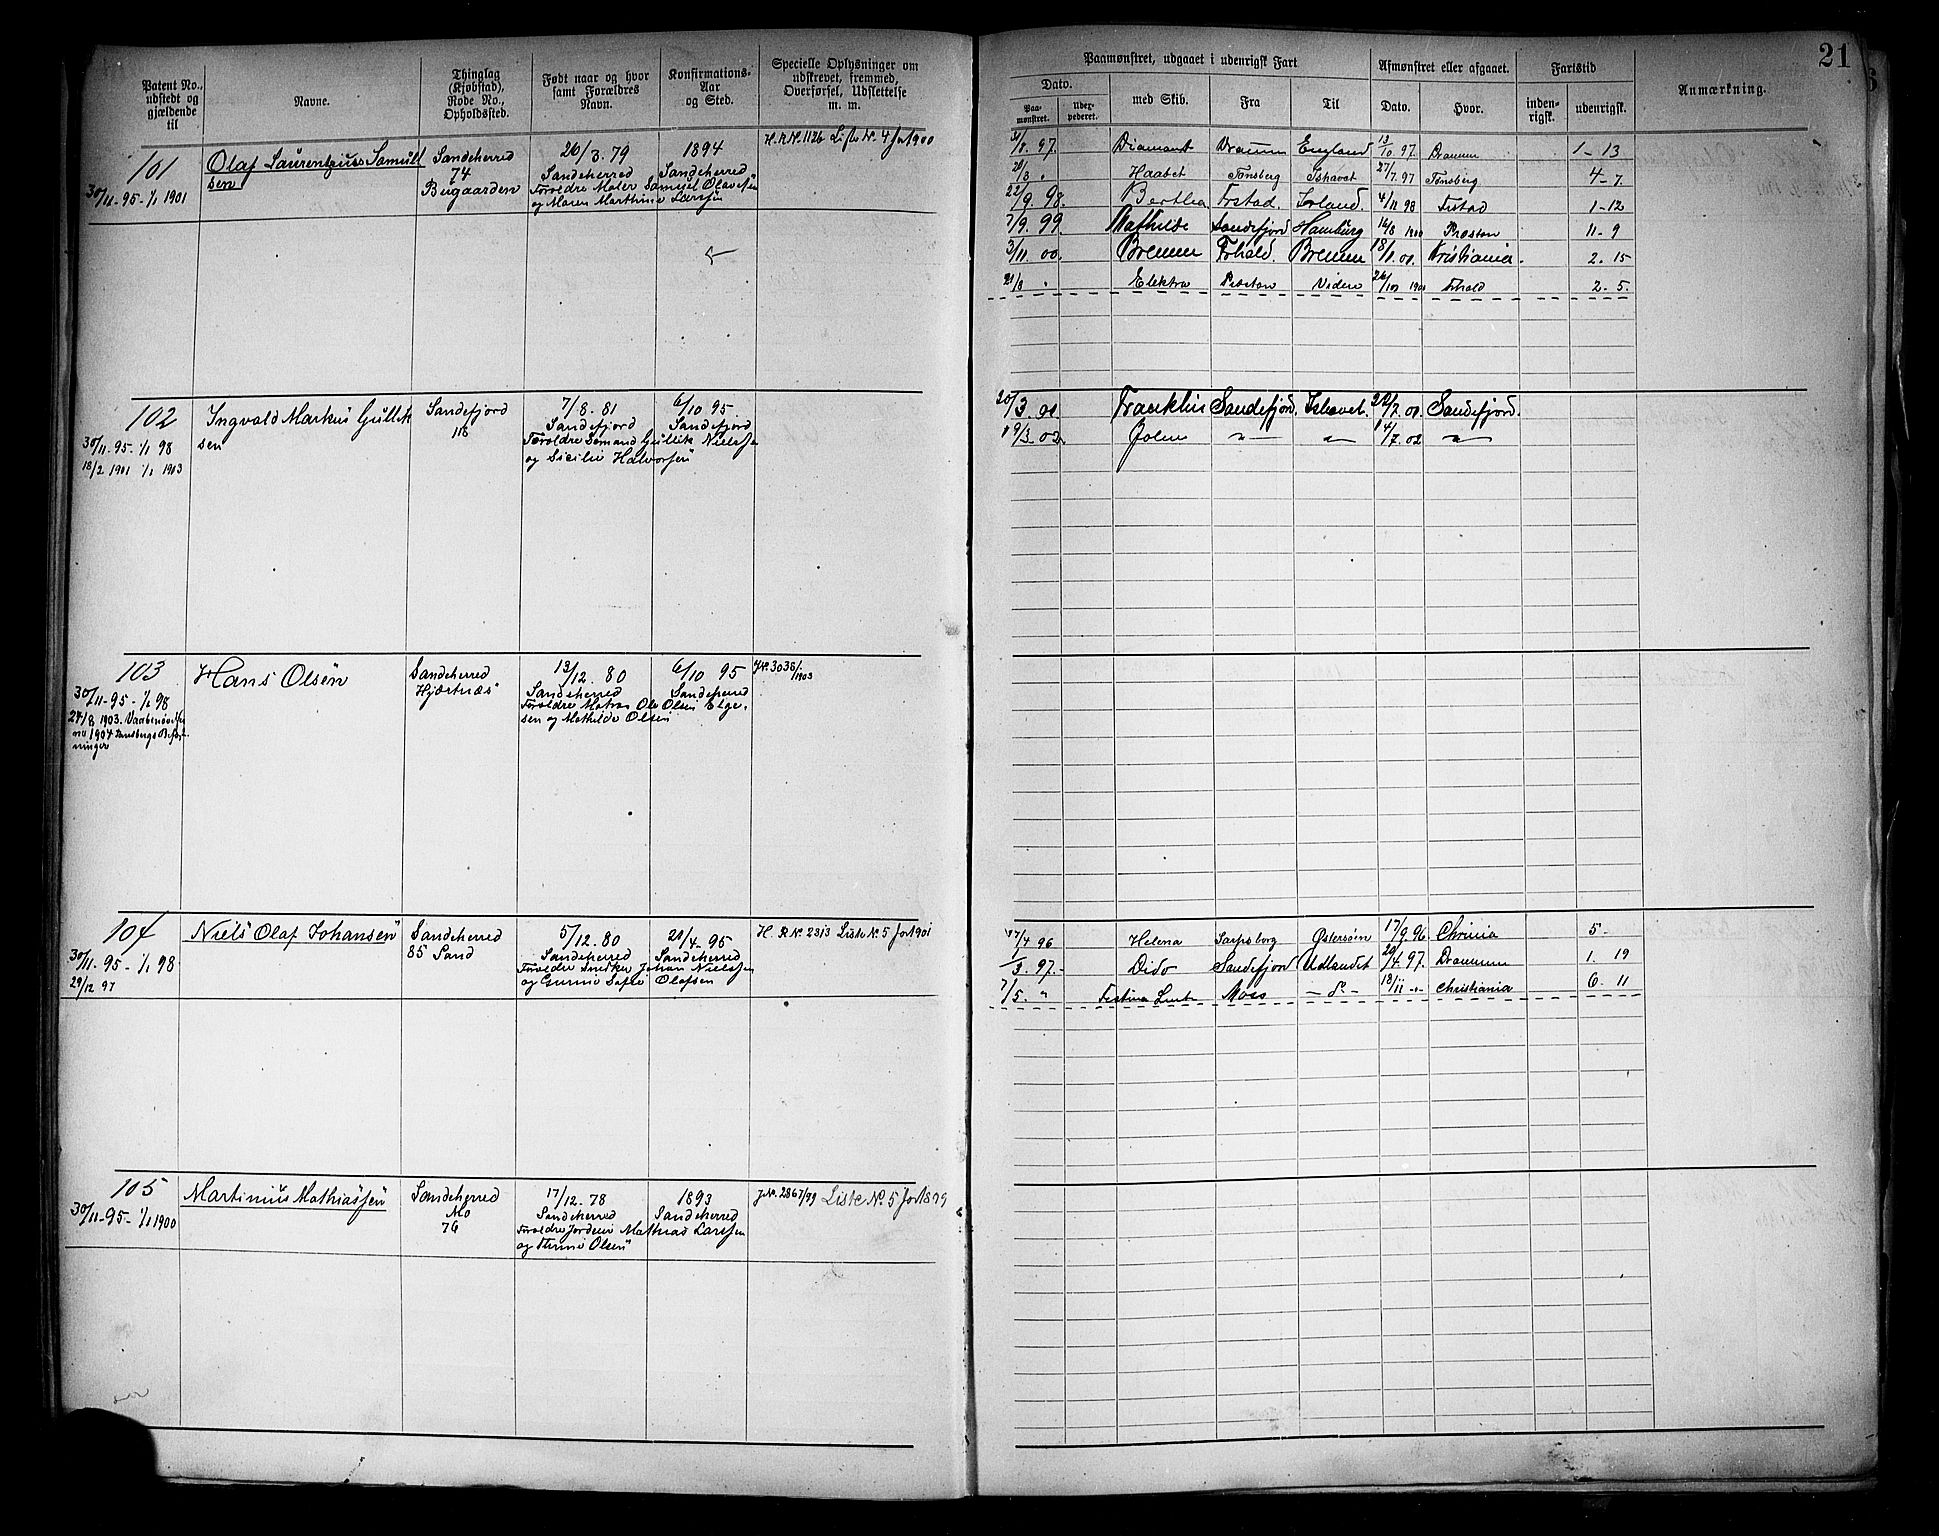 21
Patent No., udstedt og gjældende til
Navne.
Thinglag (Kjøbstad), Rode No., Opholdssted.
Født naar og hvor samt Forældres Navn.
Konfirmations-Aar og Sted.
Specielle Oplysninger om udskrevet, fremmed, Overførsel, Udslettelse m. m.
Paamønstret, udgaaet i udenrigsk Fart
Afmønstret eller afgaaet.
Fartstid
Anmærkning.
Dato.
Paa-mønstret.
med Skib.
Fra
Til
Dato.
Hvor.
inden-rigsk.
udenrigsk.
101
30/11-95-1/1 1901
Olaf Laurentzius Samuel
sen
Sandeherred
74
Bugaarden
26/3.79
Sandeherred
1894
Sandeherred
Forældre Maler Samuel Olavesen
og Maren Marthine Larsen
H.R.N. 1126 Liste N. 4 for 1900
97. Diamant Dramm England 13/10.97. Dramm 1-13
Haabet Tønsberg Ishavet 27/7.97 Tønsberg 4-7
22/9.98. Bertha Frstad. Irland. 4/11 98 Frstad 1-12
7/9.99 Mathilde Sandefjord Hamburg 16/8 1900 Preston 11-9
3/11.00. Bremen Frhald. Bremen 18/1.01. Kristiania. 2.15
21/8 " Elektra Preston Viden Frhald 2.5.
102
30/11-95-1/1 98
18/2 1901 1/1 1903
Ingvald Markus Gullik
sen
Sandefjord
118
7/8.81
Sandefjord
6/10 95
Sandefjord
Forældre Sømand Gullik Nielssen
og Sicilie Halvorsen
3.01 Franklin Sandefjord. Ishavet. 7.01. Sandefjord.
19/3.02 14/7.02
103
30/11-95-1/1 98
24/8 1903.
Hans Olsen
Sandeherred
Hjærtnæs
13/12.80
Sandeherred
6/10 95
Sandeherred
Forældre Matros Ole Olsen Elge-
sen og Mathilde Olsen
J.N. 3036/1903
104
30/11-95-1/1 98
29/12 97
Niels Olaf Johansen
Sandeherred
85 Sand
5/12.80
Sandeherred
21/4-95
Sandeherred
Forældre Snekker Johan Nielssen
og Gurine Sofie Olafsen
H.R.N. 2313 Liste N. 5 for 1901
17/4 96 Helena Sarpsborg Østersøen 17/9.96 Chrnia 5-
1/3.97.- Dido Sandefjord Udlandet 20/4.97. Drammen 1. 19
7/5. " Festina Lente Moss 18/11 -"- Christiania 6. 11
105
30/11-95-1/1 1900
Martinius Mathiassen
Sandeherred
Mo
76
17/12.78
Sandeherred
1893
Sandeherred
Forældre Mathias Larssen
og Olsen
J.N. 2867/99 Liste N. 5 for 1899